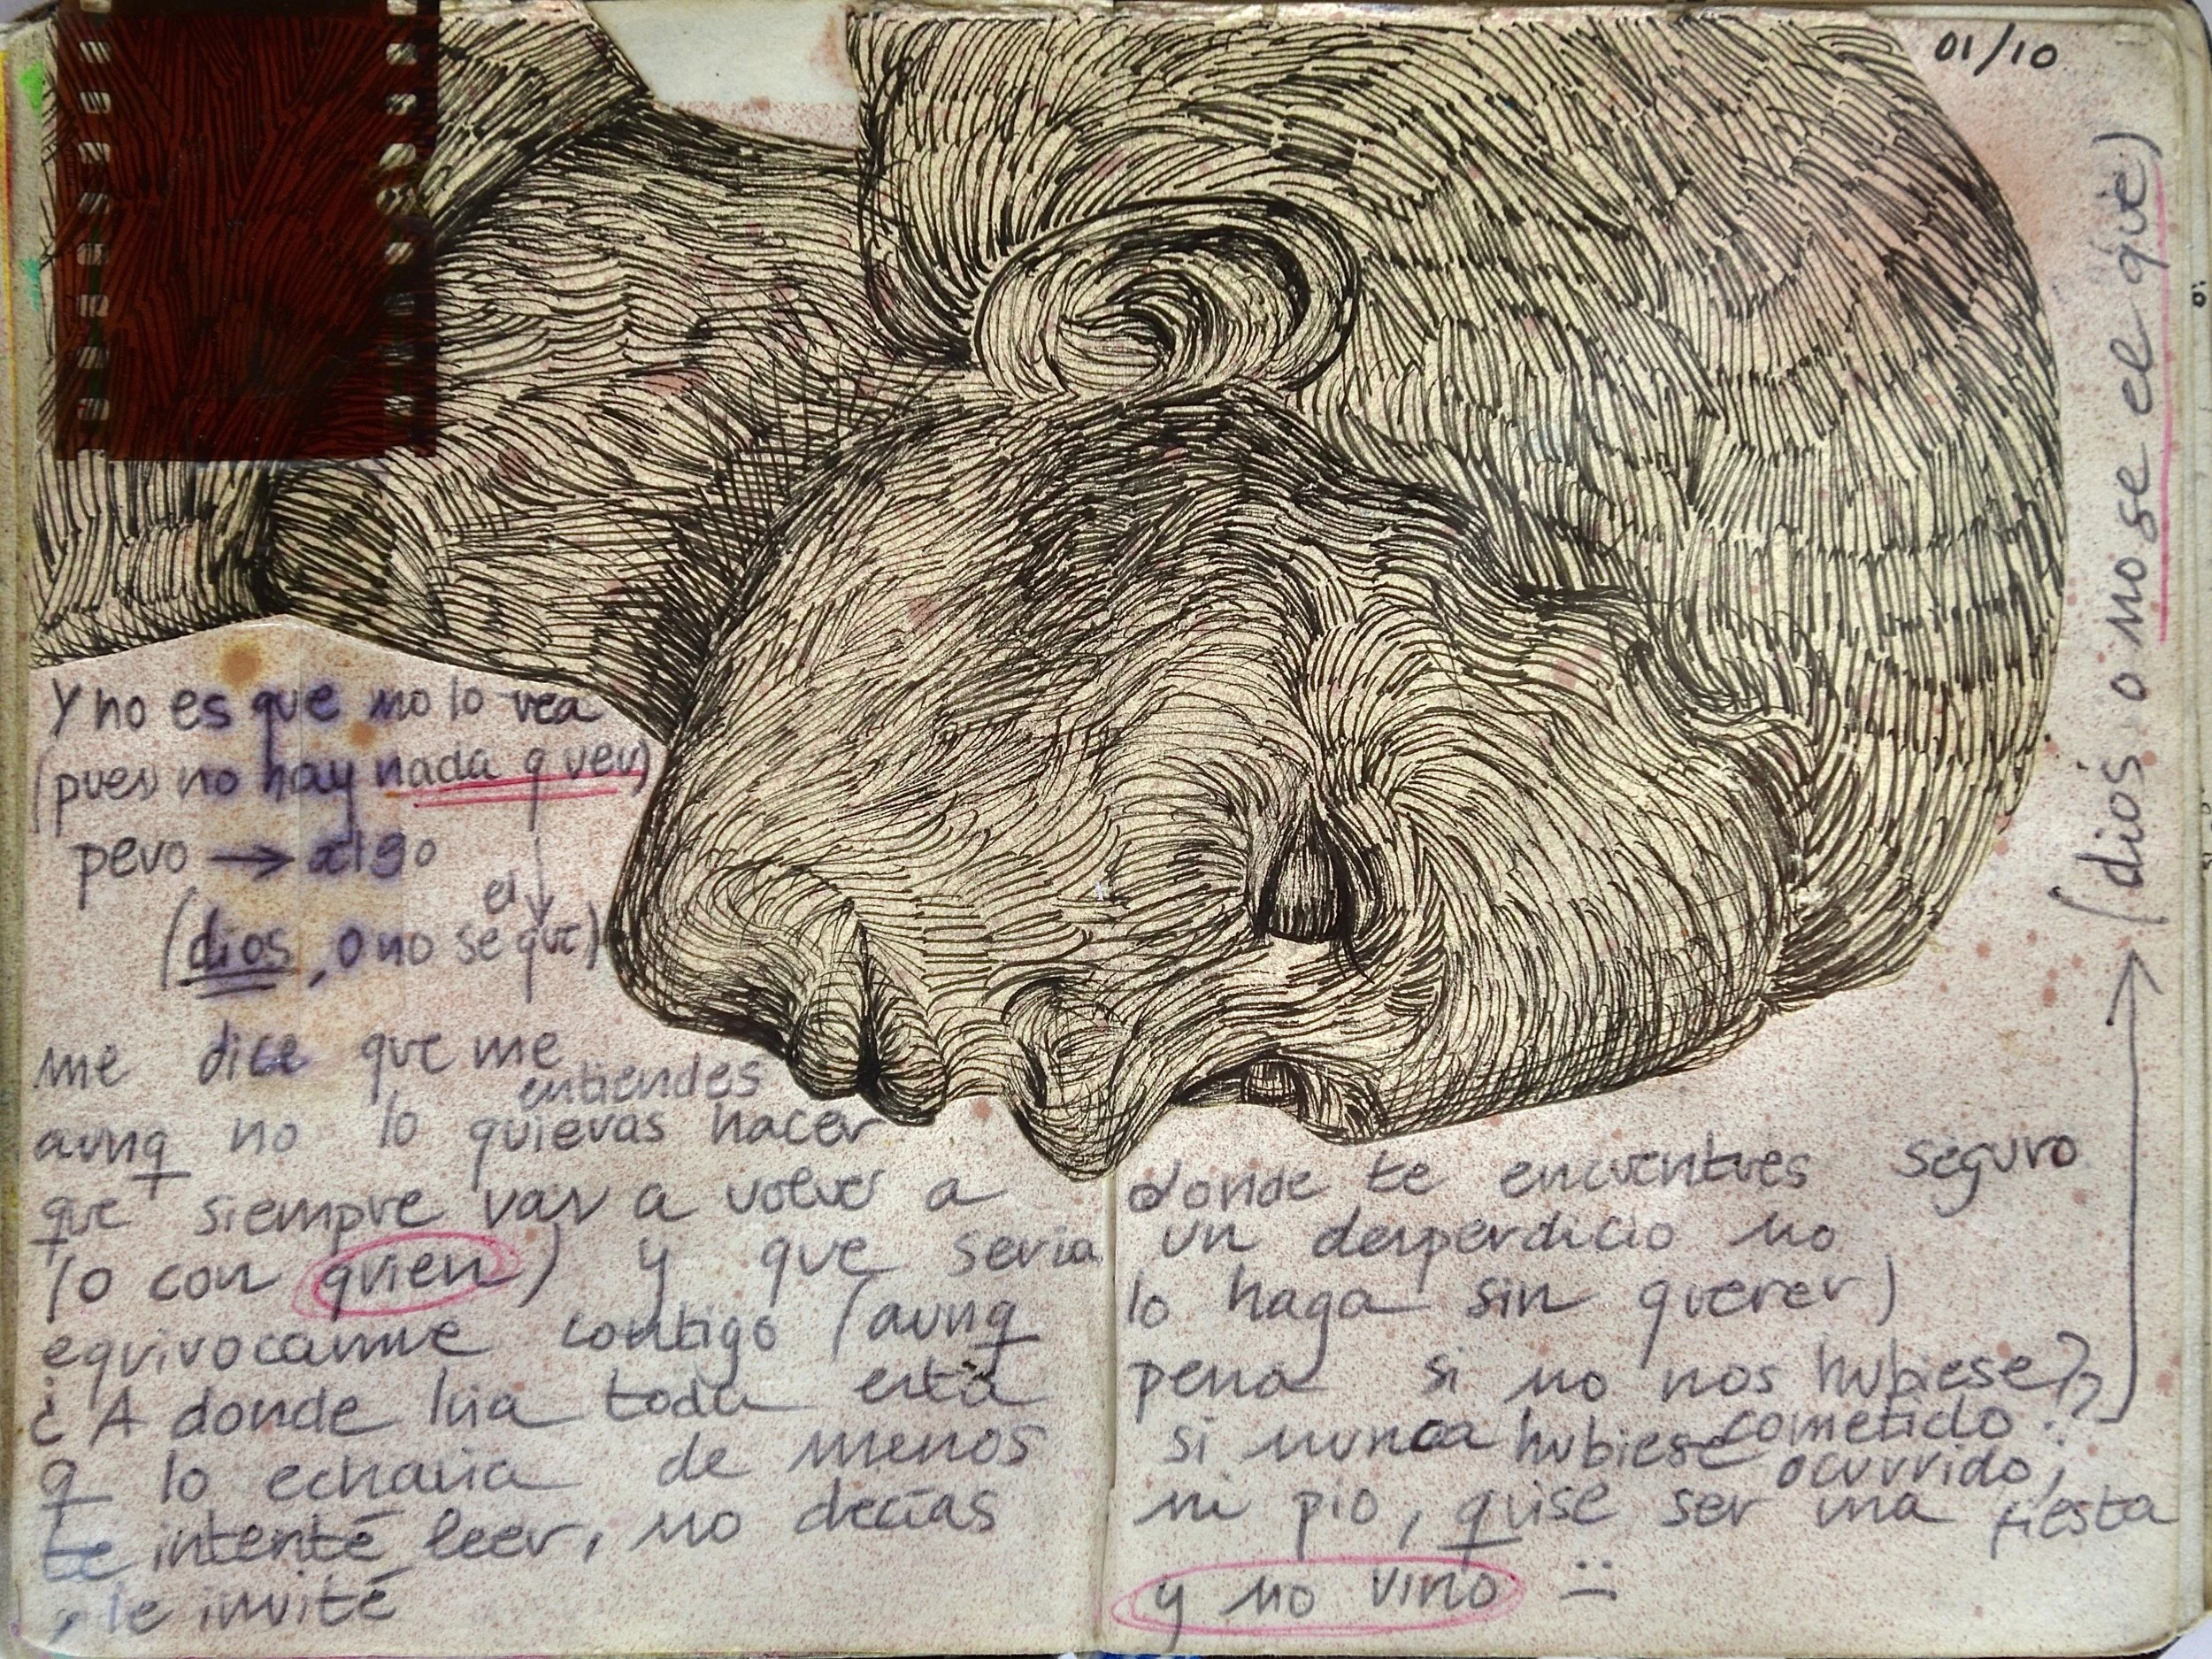 01/10
Y no es que no lo vea
(pues no hay nada q ver)
pero → algo
(dios, o no se el que)
me dice que me entiendes
aunq no lo quieras hacer
que siempre vas a volver a donde te encuentres seguro
(o con quien) y que seria un desperdicio no
equivocarme contigo (aunq lo haga sin querer)
¿A donde iria toda esta pena si no nos hubiese??
q lo echaria de menos si nunca hubiese cometido
ocurrido,
te intenté leer, no decías ni pio, quise ser una fiesta
, le invité y no vino :(
(dios o no se el que)